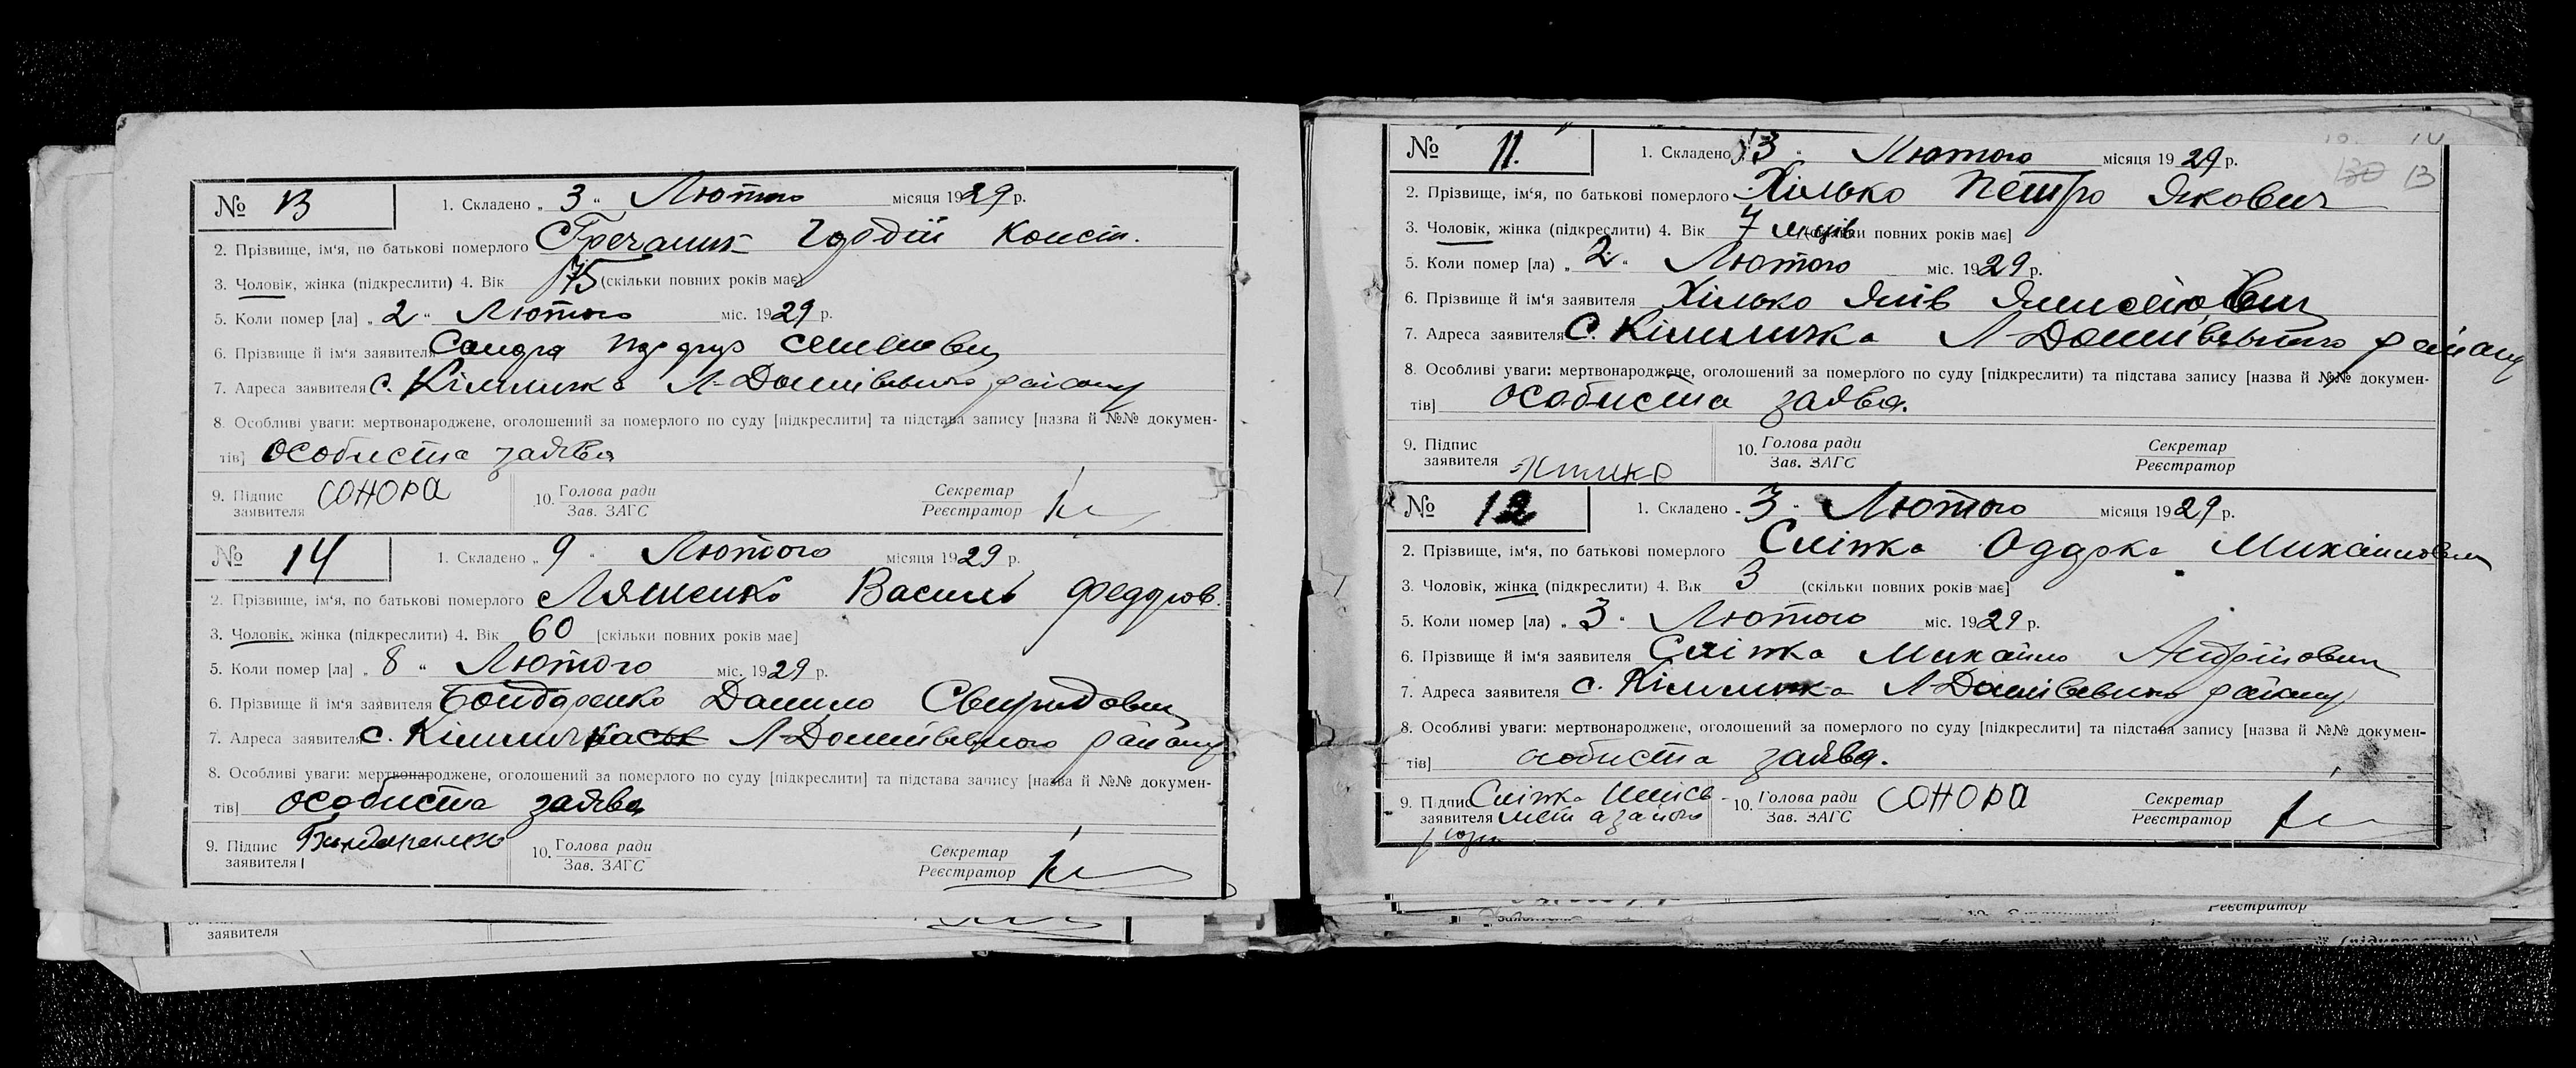 № 13
1. Складено „ 3 “ Лютого місяця 1929 р.
2. Прізвище, ім'я, по батькові померлого Гречаник Гордій Конст.
3. Чоловік, жінка (підкреслити) 4. Вік 75 (скільки повних років має)
5. Коли помер [ла] „ 2 “ Лютого міс. 1929 р.
6. Прізвище й ім'я заявителя
7. Адреса заявителя с. Л-Долинівського району
8. Особливі уваги: мертвонароджене, оголошений за померлого по суду [підкреслити] та підстава запису [назва й №№ докумен-
тів] Особиста заява
9. Підпис заявителя СОНОРА 10. Голова ради Зав. ЗАГС Секретар Реєстратор
№ 14
1. Складено „ 9 “ Лютого місяця 1929 р.
2. Прізвище, ім'я, по батькові померлого Ляшенко Василь Федоров.
3. Чоловік, жінка (підкреслити) 4. Вік 60 [скільки повних років має]
5. Коли помер [ла] „ 8 “ Лютого міс. 1929 р.
6. Прізвище й ім'я заявителя Бондаренко Данило Свиридович
7. Адреса заявителя с. району
8. Особливі уваги: мертвонароджене, оголошений за померлого по суду [підкреслити] та підстава запису [назва й №№ докумен-
тів] особиста заява
9. Підпис заявителя Бондаренко 10. Голова ради Зав. ЗАГС Секретар Реєстратор
заявителя
№ 11.
1. Складено „ 3 “ Лютого місяця 1929 р.
2. Прізвище, ім'я, по батькові померлого Хілько Петро Якович
3. Чоловік, жінка (підкреслити) 4. Вік 7 місців (скільки повних років має]
5. Коли помер [ла) „ 2 “ Лютого міс. 1929 р.
6. Прізвище й ім'я заявителя Хілько Яків
7. Адреса заявителя с. району
8. Особливі уваги: мертвонароджене, оголошений за померлого по суду [підкреслити) та підстава запису [назва й №№ докумен-
тів] особиста заява.
9. Підпис заявителя 10. Голова ради Зав. ЗАГС Секретар Реєстратор
№ 12
1. Складено „ 3 “ Лютого місяця 1929 р.
2. Прізвище, ім'я, по батькові померлого Сліпка Одарка Михайловна
3. Чоловік, жінка (підкреслити) 4. Вік 3 (скільки повних років має]
5. Коли помер [ла) „ 3 “ Лютого міс. 1929 р.
6. Прізвище й ім'я заявителя Сліпка Михайло Андрійович
7. Адреса заявителя с. району
8. Особливі уваги: мертвонароджене, оголошений за померлого по суду [підкреслити] та підстава запису [назва й №№ докумен-
тів] особиста заява.
9. Підпис заявителя Сліпка 10. Голова ради Зав. ЗАГС СОНОРА Секретар Реєстратор
Реєстратор